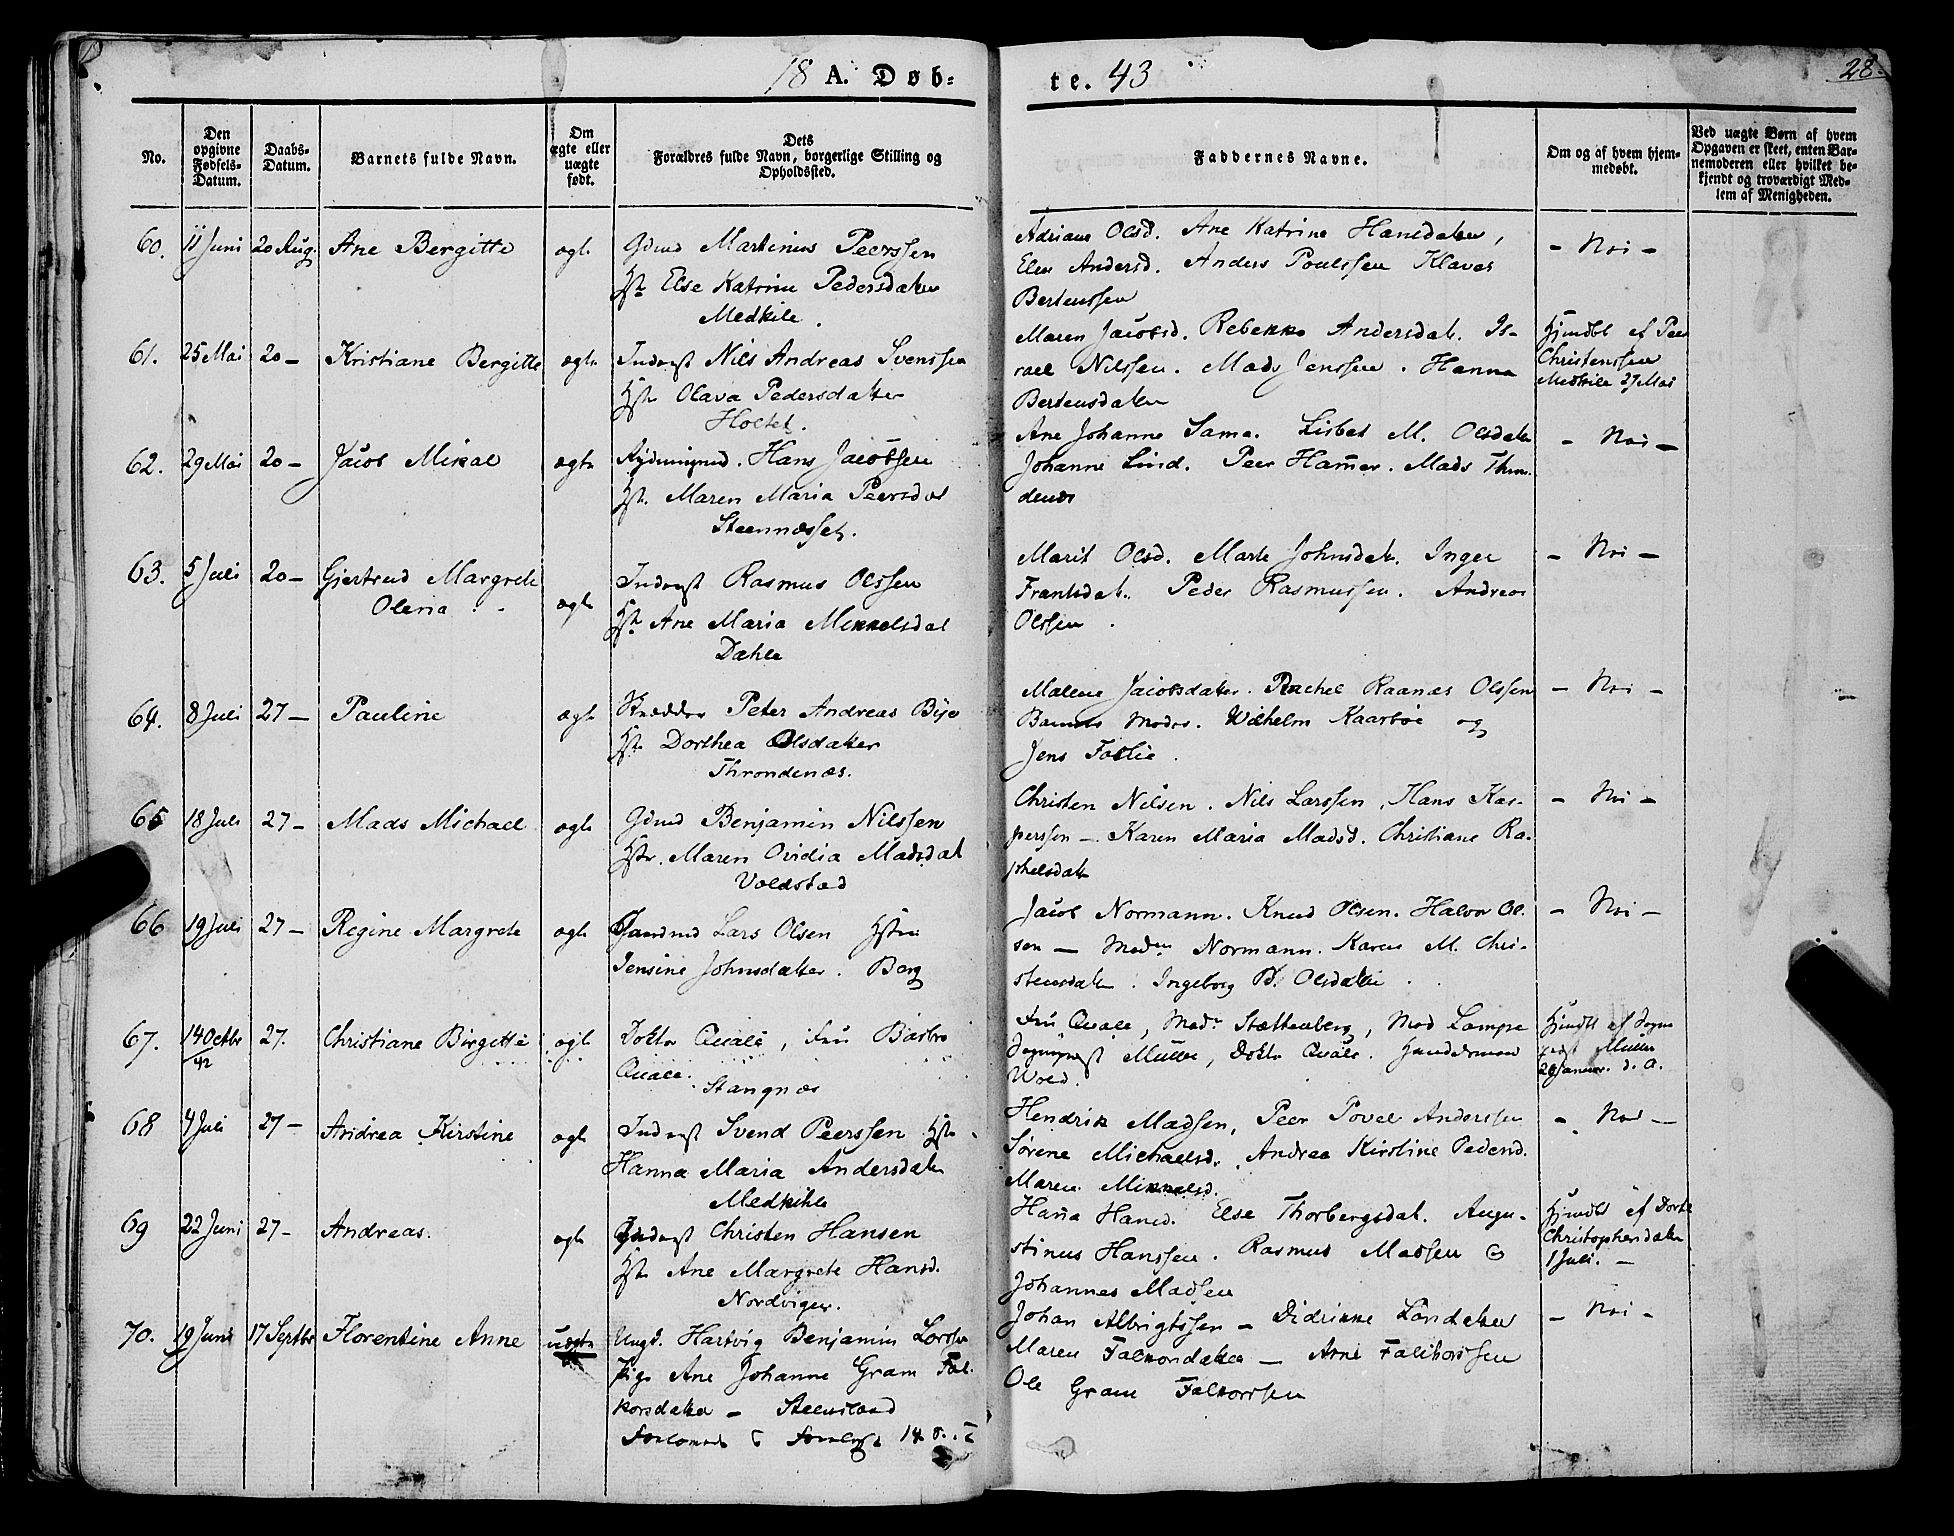 18 A. Døb-
te. 43
28.
No.
Den opgivne Fødsels-Datum.
Daabs-Datum.
Barnets fulde Navn.
Om ægte eller uægte født.
Dets Forældres fulde Navn, borgerlige Stilling og Opholdssted.
Faddernes Navne.
Om og af hvem hjemmedøbt.
Ved uægte Børn af hvem Opgaven er skeet, enten Barnemoderen eller hvilket bekjendt og troværdigt Medlem af Menigheden.
60. 11 Juni 20 Aug. Ane Bergitte ægte
Gdmd Martinus Peerssen
Hst. Else Katrine Pedersdatter
Medkile.
Adriane Olsd. Ane Katrine Hansdatter,
Elen Andersd. Anders Poulssen Klaves
Bertenssen
- Nei -
61. 25 Mai 20 - Kristiane Bergitte ægte
Inderst Nils Andreas Svenssen
Hst. Olava Pedersdatter
Holtet.
Maren Jacobsd. Rebekka Andersdat. Is-
rael Nilssen. Mads Jenssen. Hanna
Bertensdatter
Hjmdbt af Peer
Christenssen
Medkile 27 Mai
62. 29 Mai 20 - Jacob Mikal ægte
Rydningmd. Hans Jacobsen
Hst. Maren Maria Peersdat
Steennæsset.
Ane Johanne Sama. Lisbet M. Olsdatter
Johanne Lind. Peer Hamer. Mads Thron-
denæs
- Nei -
63. 5 Juli 20 - Gjertrud Margrete
Olena ægte
Inderst Rasmus Olssen
Hst. Ane Maria Mikkelsdat
Dahle
Marit Olsd. Marte Johnsdat. Inger
Frantsdat. Peder Rasmussen. Andreas
Olssen.
- Nei -
64. 8 Juli 27 - Pauline ægte
Skrædder Peter Andreas
Hst. Dorthea Olsdatter
Throndenæs.
Malene Jacobsdatter. Rachel Raanæs Olssen
Barnets Moder. Wilhelm Kaarbøe og
Jens Foslie.
- Nei -
65 18 Juli 27 - Mads Michael ægte
Gdmd Benjamin Nilssen
Hst. Maren Ovidia Madsdat
Voldstad
Christen Nilsen. Nils Larssen, Hans Kas-
persson - Karen Maria Madsd. Christiane Ra-
phelsdatt
- Nei -
66 19 Juli 27 - Regine Margrete ægte
Gaardmd Lars Olsen Hstru
Jensine Johnsdatter. Berg
Jacob Normann. Knud Olsen. Halvor Ol-
sen - Madm Normann. Karen M. Chri-
stensdatter. Ingeborg B. Olsdatter.
- Nei -
67. 14 Octbr 42 27. Christiane Birgitte ægte
Doktor Quale, Fru Barbro
Quale. Stangnæs
Fru Quale, Madm Stoltenberg, Mad Lampe
Sognepræst Müller, Doktor Quale. Handelsmand
Wold.
Hjmdbt af Sogne
præst Müller
20 Januar. d. A.
68 4 Juli 27 - Andrea Kirstine ægte
Inderst Svend Peerssen Hst.
Hanna Maria Andersdatter
Medkihle
Hendrik Madsen, Peer Povel Anderssen
Sørene Michaelsd. Andrea Kirstine Pedersd.
Maren Mikkelsd.
- Nei -
69 22 Juni 27 - Andreas. ægte
Inderst Christen Hansen
Hst. Ane Margrete Hansd.
Nordvigen.
Hana Hansd. Else Thorbergsdat. Augu-
stinus Hanssen. Rasmus Madsen &
Johannes Madsen
Hjmdbt af Dorte
Christophersdatter
1 Juli. -
70. 19 Juni 17 Septbr Florentine Anne uægte
Ungk. Hartvig Benjamin Larssen
Pige Ane Johanne Gram Fal-
korsdatter - Steensland
Johan Albrigtssen - Didrikke
Maren Falkorsdatter - Arne Falkorssen
Ole Gram Falkorssen
- Nei -